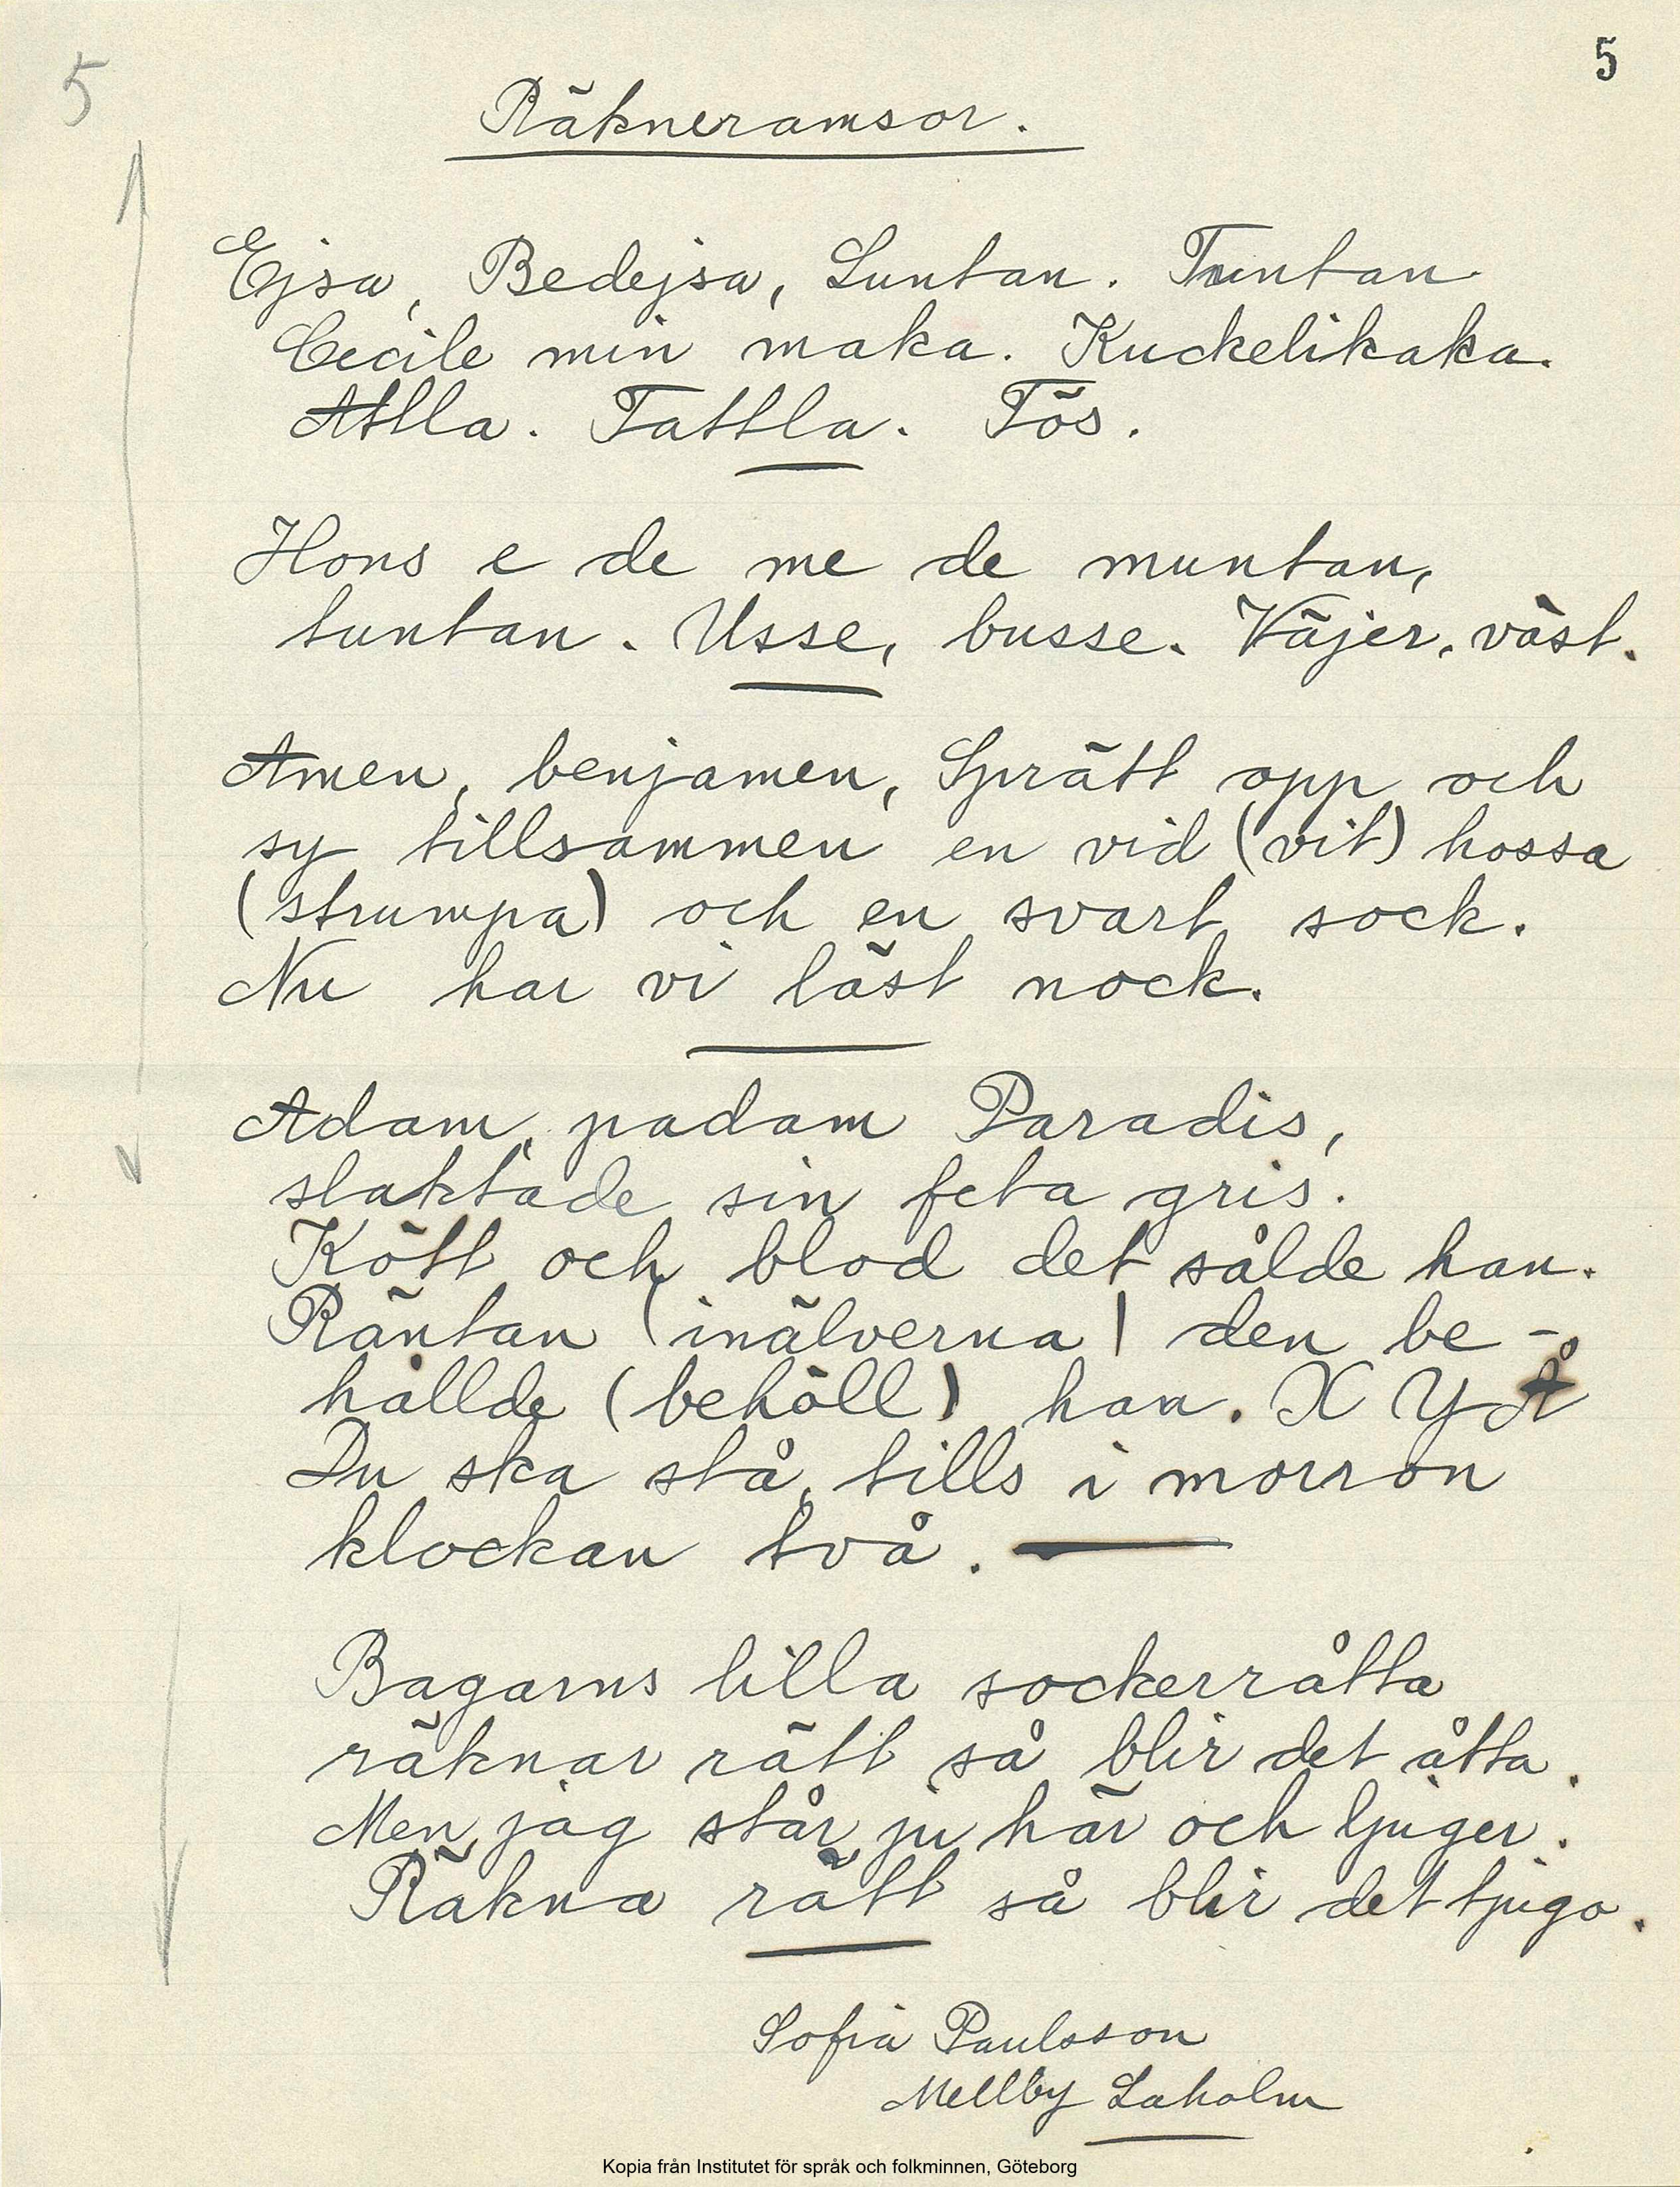 5
5
Räkneramsor.
Ejsa, Bedejsa, Luntan. Tuntan.
Cecile min maka. Kuckelikaka.
Attla. Tattla. Tös.
Hons e de me de muntan,
tuntan. Usse, busse. Väjer, väst.
Amen, benjamen, Sprätt opp och
sy tillsammen en vid (vit) hossa
(strumpa) och en svart sock.
Nu har vi läst nock.
Adam, padam Paradis,
slaktade sin feta gris.
Kött och blod det sålde han.
Räntan (inälverna) den be-
hållde (behöll) han. X Y Å
Du ska stå, tills i morron
klockan två.
Bagarns lilla sockerråtta
räknar rätt så blir det åtta.
Men jag står ju här och ljuger.
Räkna rätt så blir det tjugo.
Sofia Paulsson
Mellby Laholm
Kopia från Institutet för språk och folkminnen, Göteborg